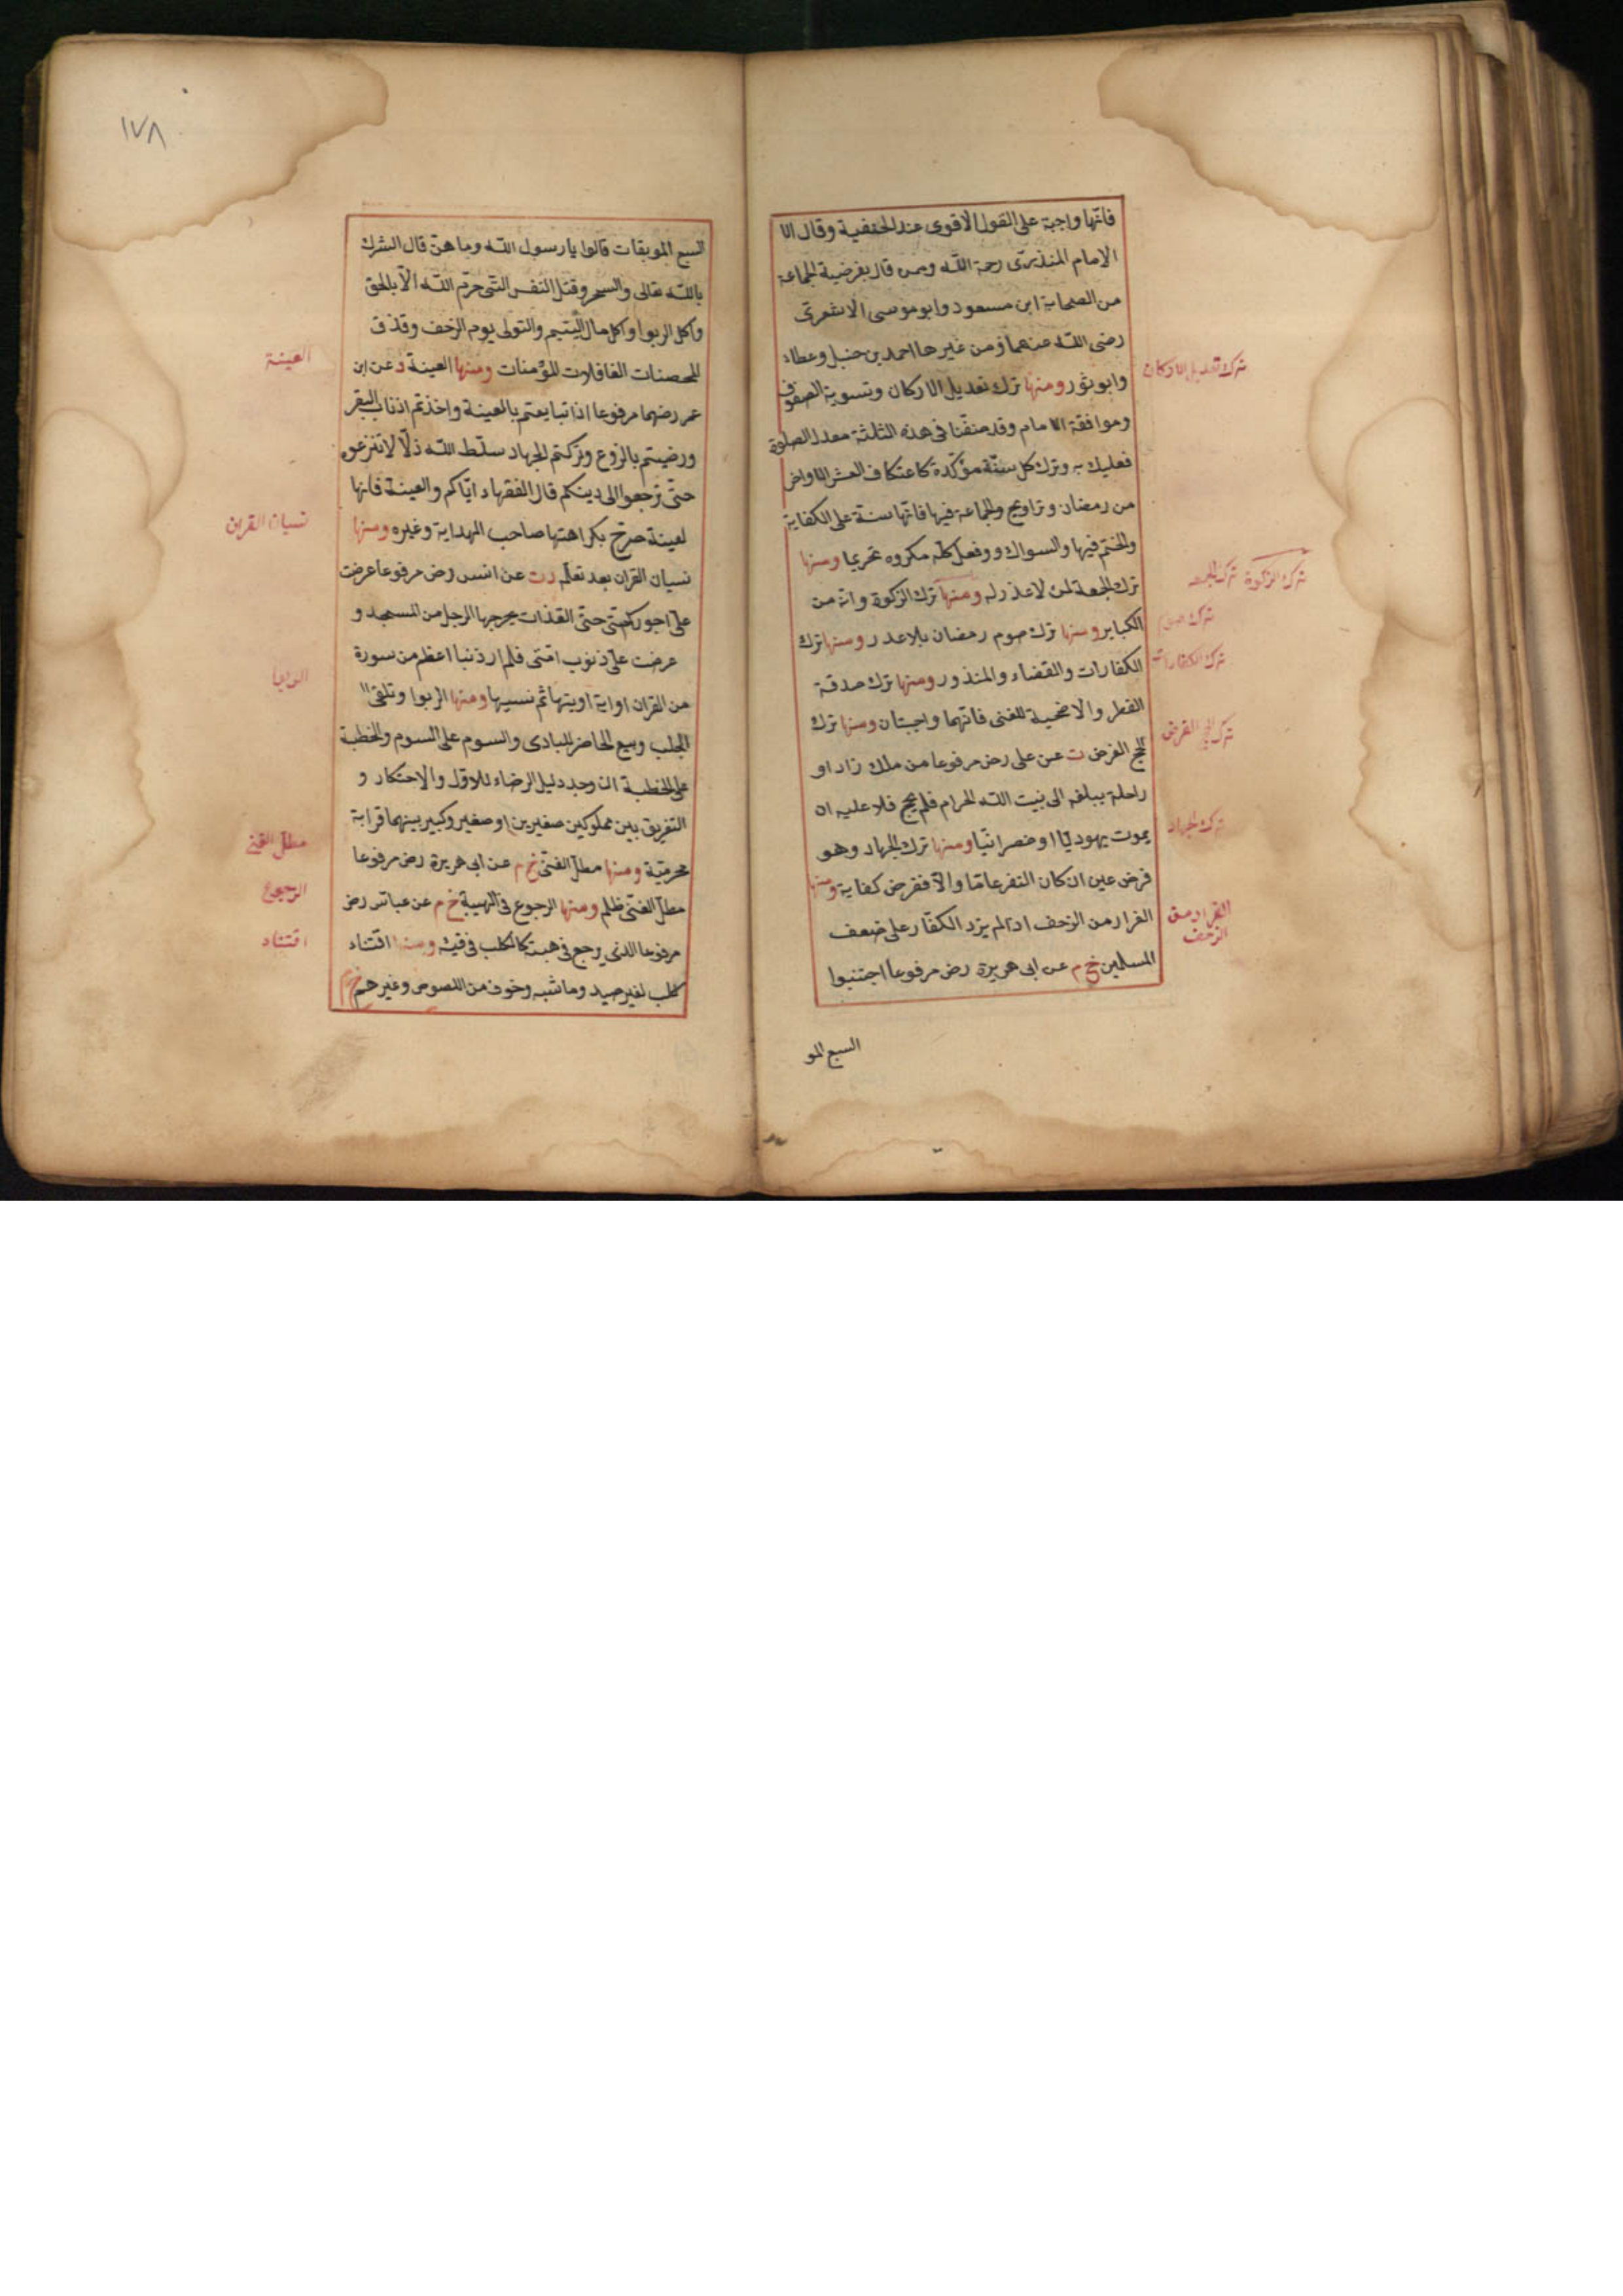 فانّها واجبة على القول الاقوى عند الحنفية وقال الا
الامام المنذرى رحمة اللّه وممن قال بفرضية الجماعة
من الصحابة ابن مسعود وابو موسى الاشعرى
رضى اللّه عنهما ومن غيرهما احمد بن حنبل وعطاء
وابو ثور ومنها ترك تعديل الاركان وتسوية الصفوف
وموافقة الامام وقد صنفنا فى هذه الثلثة معدل الصلوة
فعليك به وترك كل سنّة مؤكّدة كاعتكاف العشر الاواخر
من رمضان وتراويح والجماعة فيها فانّها سنة على الكفاية
والختم فيها والسواك وفعل كلّ مكروه تحريما ومنها
ترك الجمعة لمن لا عذر له ومنها ترك الزكوة وانّه من
الكباير ومنها ترك صوم رمضان بلا عذر ومنها ترك
الكفارات والقضاء والمنذور ومنها ترك صدقة
الفطر والاضحية للغنى فانّهما واجبتان ومنها ترك
الحج الفرض ت عن على رض مرفوعا من ملك زاد او
راحلة يبلغه الى بيت اللّه الحرام فلم يحج فلا عليه ان
يموت يهوديّا او نصرانيّا ومنها ترك الجهاد وهو
فرض عين ان كان النفر عامّا والّا ففرض كفاية ومنها
الفرار من الزحف اذا لم يزد الكفّار على ضعف
المسلمين خ م عن ابى هريرة رض مرفوعا اجتنبوا
السبع المو
ترك تعديل الاركان
ترك الزكوة ترك الجمعه
ترك صوم
ترك الكفارات
ترك الحج الفرض
ترك الجهاد
الفرار من
الزحف
١٧٨
السبع الموبقات قالوا يا رسول اللّه وما هنّ قال الشرك
باللّه تعالى والسحر وقتل النفس التى حرّم اللّه الّا بالحق
واكل الربوا واكل مال اليتيم والتولى يوم الزحف وقذف
المحصنات الغافلات المؤمنات ومنها العينة د عن ابن
عمر رضهما مرفوعا اذا تبايعتم بالعينة واخذتم اذناب البقر
ورضيتم بالزرع وتركتم الجهاد سلّط اللّه ذلّا لا تنزعو
حتّى ترجعوا الى دينكم قال الفقهاء ايّاكم والعينة فانها
لعينة صرّح بكراهتها صاحب الهداية وغيره ومنها
نسيان القران بعد تعلّمه د ت عن انس رض مرفوعا عرضت
علىّ اجور امّتى حتّى القذات يخرجها الرجل من المسجد و
عرضت علىّ ذنوب امّتى فلم ار ذنبا اعظم من سورة
من القران او اية اوتيها ثم نسيها ومنها الربوا وتلقى ال
الجلب وبيع الحاضر للبادى والسوم على السوم والخطبة
على الخطبة ان وجد دليل الرضاء للاوّل والاحتكار و
التفريق بين مملوكين صغيرين او صغير وكبير بينهما قرابة
محرميّة ومنها مطل الغنى خ م عن ابى هريرة رض مرفوعا
مطل الغنى ظلم ومنها الرجوع فى الهبة خ م عن عباس رض
مرفوعا الذى يرجع فى هبته كالكلب فى قيئه ومنها اقتناء
كلب لغير صيد وماشيه وخوف من اللصوص وغيرهم خ م
العينة
نسيان القران
الربوا
مطل الغنى
الرجوع
اقتناء